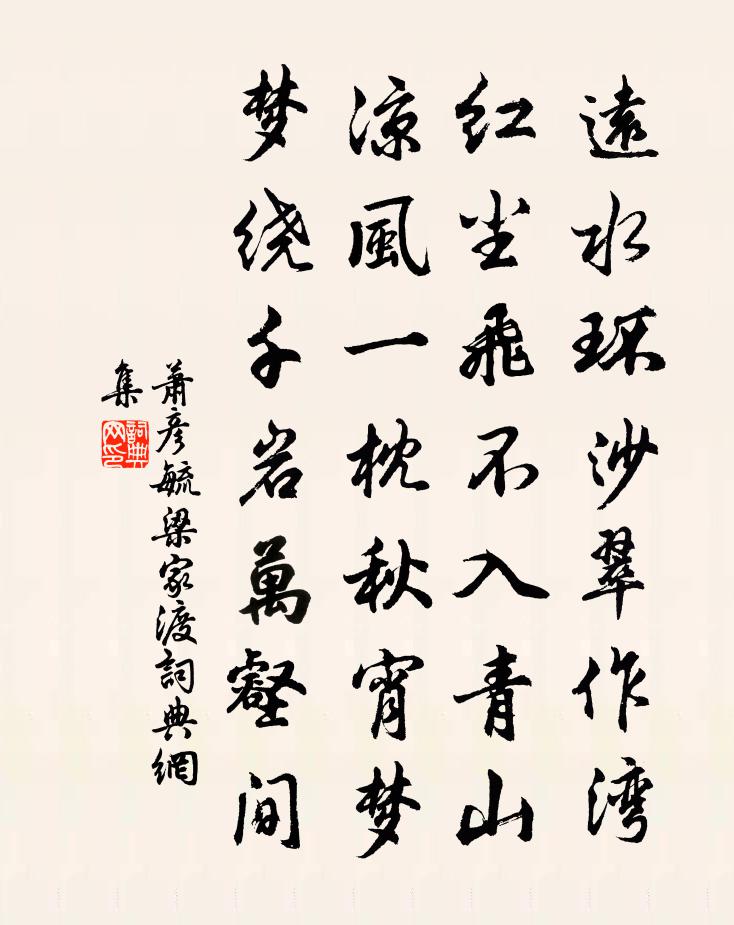 遠水环沙翠作湾
红尘飛不入青山
凉風一枕秋宵梦
梦绕千岩萬壑间
萧彦毓梁家渡詞典網
集
詞典
网印